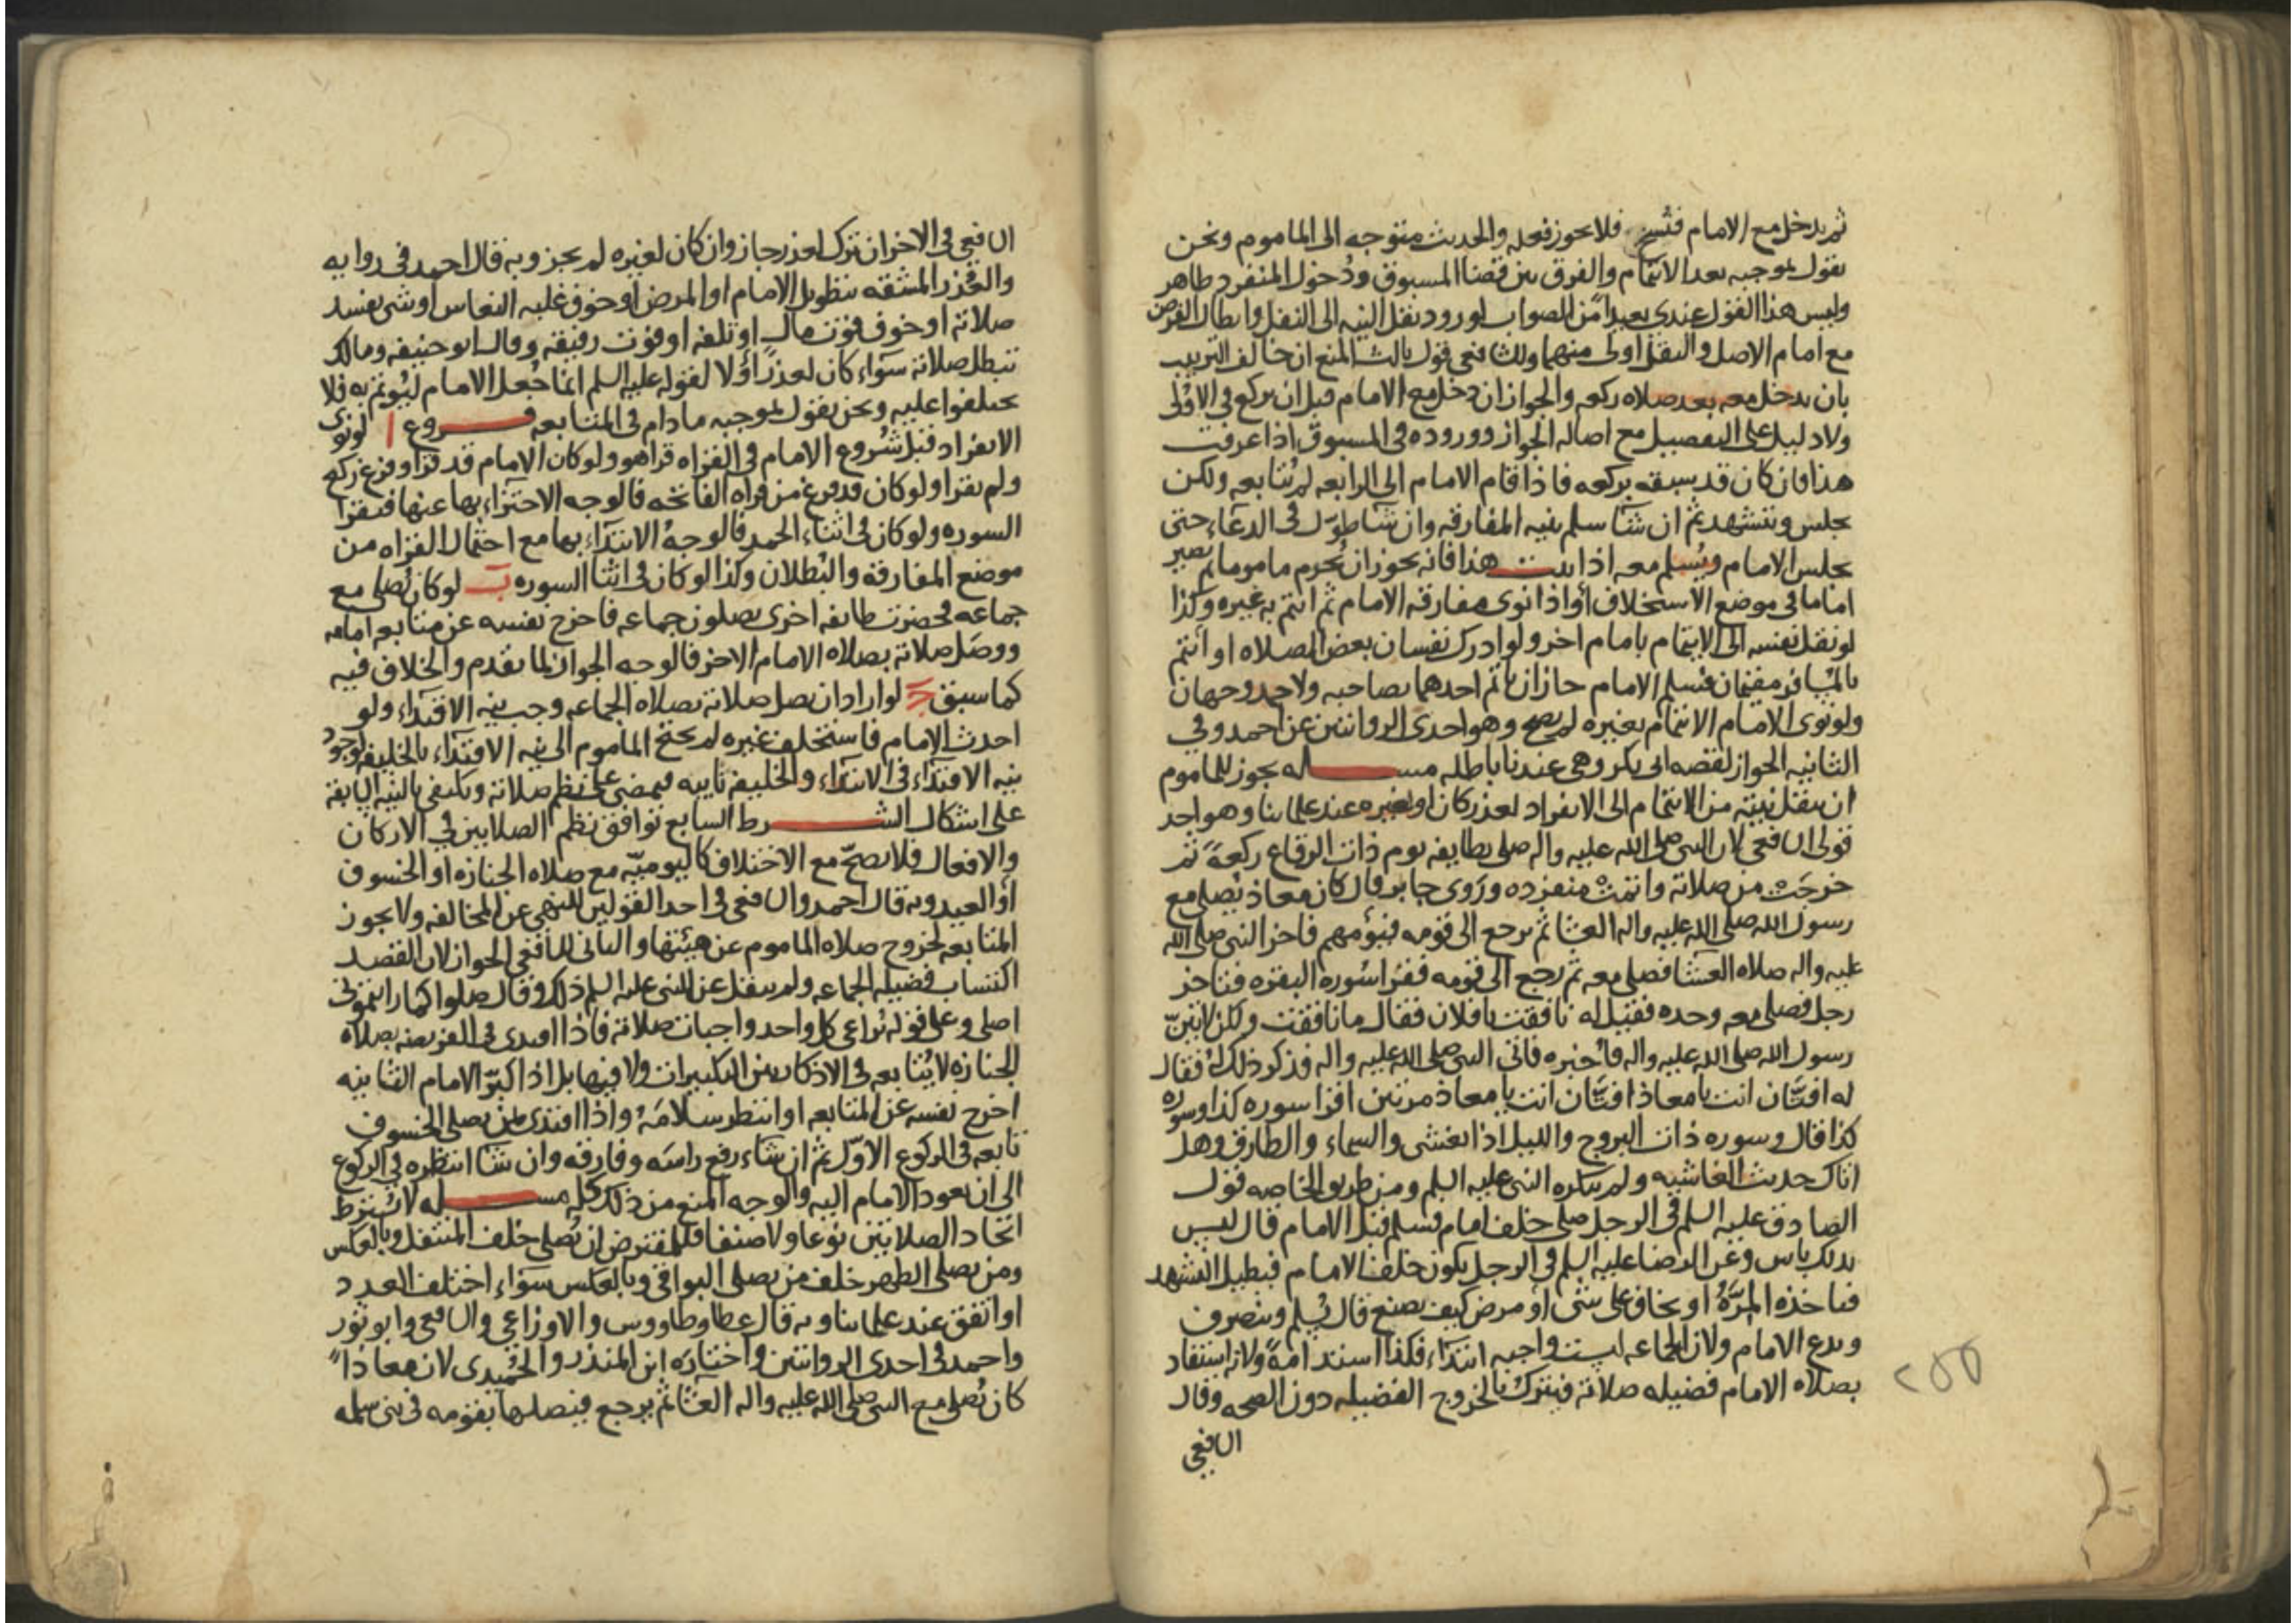 ثم يدخل مع الامام فنسخ فلا يجوز فعله والحديث متوجه الى الماموم ونحن
نقول بموجبه بعد الائتمام والفرق بين قضا المسبوق ودخول المنفرد ظاهر
وليس هذا القول عندي بعيدا من الصواب لورود نقل النيه الى النفل وابطال الفرض
مع امام الاصل والنفل اولى منهما وللشافعي قول ثالث المنع ان خالف الترتيب
بان يدخل معه بعد صلاه ركعه والجواز ان دخل مع الامام قبل ان يركع في الاولى
ولا دليل على التفصيل مع اصاله الجواز ووروده في المسبوق اذا عرفت
هذا فان كان قد سبقه بركعه فاذا قام الامام الى الرابعه لم يتابعه ولكن
يجلس ويتشهد ثم ان شا سلم بنيه المفارقه وان شا طول في الدعاء حتى
يجلس الامام ويسلم معه اذا ثبت هذا فانه يجوز ان يحرم ماموما ثم يصير
اماما في موضع الاستخلاف أو اذا نوى مفارقه الامام ثم ائتم به غيره وكذا
لو نقل نفسه الى الايتمام بامام اخر ولو ادرك نفسان بعض الصلاه او ائتم
بالمسافر مقيمان فسلم الامام جاز ان ياتم احدهما بصاحبه ولاحمد وجهان
ولو نوى الامام الائتمام بغيره لم يصح وهو احدى الروايتين عن احمد وفي
الثانيه الجواز لقصه ابي بكر وهي عندنا باطله مسـله يجوز للماموم
ان ينقل نيته من الائتمام الى الانفراد لعذر كان او لغيره عند علمائنا وهو احد
قولى الشافعي لان النبي صلى الله عليه واله صلى بطايفه يوم ذات الرقاع ركعة ثم
خرجت من صلاته واتمت منفرده وروى جابر قال كان معاذ يصلي مع
رسول الله صلى الله عليه واله العشا ثم يرجع الى قومه فيؤمهم فاخر النبي صلى الله
عليه واله صلاه العشا فصلى معه ثم رجع الى قومه فقرا سوره البقره فتاخر
رجل فصلى معه وحده فقيل له نافقت يا فلان فقال ما نافقت ولكن لاتين
رسول الله صلى الله عليه واله فاخبره فاتى النبي صلى الله عليه واله فذكر ذلك له فقال
له افتان انت يا معاذ افتان انت يا معاذ مرتين اقرا سوره كذا وسوره
كذا قال وسوره ذات البروج والليل اذا يغشى والسماء والطارق وهل
اتاك حديث الغاشيه ولم ينكره النبي عليه السلم ومن طريق الخاصه قول
الصادق عليه السلم في الرجل صلى خلف امام فسلم قبل الامام قال ليس
بذلك باس وعن الرضا عليه السلم في الرجل يكون خلف الامام فيطيل التشهد
فتاخذه المرة او يخاف على شى أو مرض كيف يصنع قال يسلم وينصرف
ويدع الامام ولان الجماعه ليست واجبه ابتداء فكذا استدامة ولانه استفاد
بصلاه الامام فضيله صلاته فيترك بالخروج الفضيله دون الصحه وقال
الشافعي
٢٥٥
الشافعي في الاخر ان ترك لعذر جاز وان كان لغيره لم يجز وبه قال احمد في روايه
والعذر المشقه بتطويل الامام او المرض او خوف غلبه النعاس او شى يفسد
صلاته او خوف فوت مال او تلفه او فوت رفيقه وقال ابو حنيفه ومالك
تبطل صلاته سواء كان لعذر أو لا لقوله عليه السلم انما جعل الامام ليؤتم به فلا
تختلفوا عليه ونحن نقول بموجبه ما دام في المتابعه فـروع ا لو نوى
الانفراد قبل شروع الامام في القراه قرا هو ولو كان الامام قد قرا وفرغ ركع
ولم يقرا ولو كان قد فرغ من قراه الفاتحه فالوجه الاجتزاء بها عنها فيقرا
السوره ولو كان في اثناء الحمد فالوجه الابتداء بها مع احتمال القراه من
موضع المفارقه والبطلان وكذا لو كان في اثنا السوره ب لو كان يصلي مع
جماعه فحضرت طايفه اخرى يصلون جماعه فاخرج نفسه عن متابعه امامه
ووصل صلاته بصلاه الامام الاخر فالوجه الجواز لما تقدم والخلاف فيه
كما سبق ج لو اراد ان يصل صلاته بصلاه الجماعه وجب نيه الاقتداء ولو
احدث الامام فاستخلف غيره لم يحتج الماموم الى نيه الاقتداء بالخليفه لوجود
نيه الاقتداء في الابتداء والخليفه نايبه فيمضي على نظم صلاته ويكتفى بالنيه السابقه
على اشكال الشـرط السابع توافق نظم الصلاتين في الاركان
والافعال فلا يصح مع الاختلاف كاليومية مع صلاه الجنازه او الخسوف
أو العيد وبه قال احمد والشافعي في احد القولين للنهي عن المخالفه ولا يجوز
المتابعه لخروج صلاه الماموم عن هيئتها والثاني للشافعي الجواز لان القصد
اكتساب فضيله الجماعه ولم ينقل عن النبي عليه السلم ذلك وقال صلوا كما رايتموني
اصلى وعلى قوله يراعى كل واحد واجبات صلاته فاذا اقتدى في الفريضه بصلاه
الجنازه لا يتابعه في الاذكار بين التكبيرات ولا فيها بل اذا كبر الامام الثانيه
اخرج نفسه عن المتابعه او انتظر سلامه واذا اقتدى بمن يصلي الخسوف
تابعه في الركوع الاول ثم ان شاء رفع راسه وفارقه وان شا انتظره في الركوع
الى ان يعود الامام اليه والوجه المنع من ذلك كله مسـله لا يشترط
اتحاد الصلاتين نوعا ولا صنفا فللمفترض ان يصلي خلف المتنفل وبالعكس
ومن يصلي الظهر خلف من يصلي البواقي وبالعكس سواء اختلف العدد
او اتفق عند علمائنا وبه قال عطا وطاووس والاوزاعي والشافعي وابو ثور
واحمد في احدى الروايتين واختاره ابن المنذر والحميدى لان معاذا
كان يصلي مع النبي صلى الله عليه واله العشا ثم يرجع فيصليها بقومه في بني سلمه